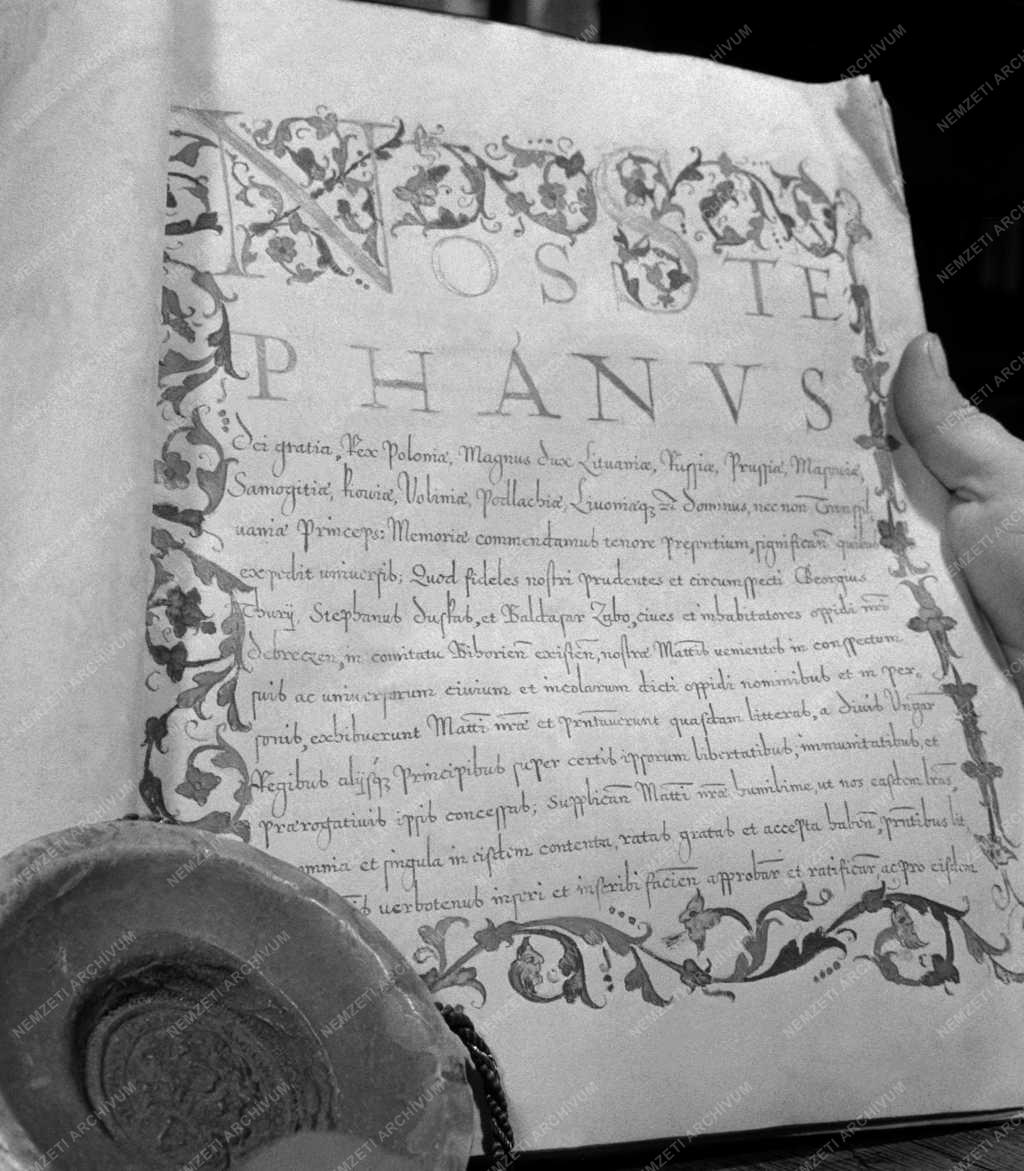 NOS STE
PHANVS
Dei gratia, Rex Poloniæ, Magnus dux Lituaniæ, Russiæ, Prussiæ, Massoviæ,
Samogitiæ, Kioviæ, Voliniæ, Podlachiæ, Livoniæq; zc̃ dominus, nec non Transsil
uaniæ Princeps: Memoriæ commendamus tenore presentium, significan̄ quibus
expedit uniuersis; Quod fideles nostri prudentes et circumspecti Georgius
Thury, Stephanus duskas, et Baldasar Zabo, ciues et inhabitatores oppidi nr̄i
debreczen, in comitatu Bihorien̄ existen̄, nostræ Mattis uementes in conspectum
suis ac uniuersorum ciuium et incolarum dicti oppidi nominibus et in per,
sonis, exhibuerunt Matti nr̄æ et pr̄ntauerunt quasdam litteras, a diuis Ungar̄
Regibus alijsq; Principibus super certis ipsorum libertatibus, immunitatibus, et
prærogatiuis ipsis concessas; Supplican̄ Matti nr̄æ humilime, ut nos easdem lr̄as,
omnia et singula in eisdem contenta, ratas gratas et accepta haben̄, pr̄ntibus lit
uerbotenus inseri et inscribi facien̄ approbar̄ et ratificar̄, ac pro eisdem
NEMZETI ARCHÍVUM